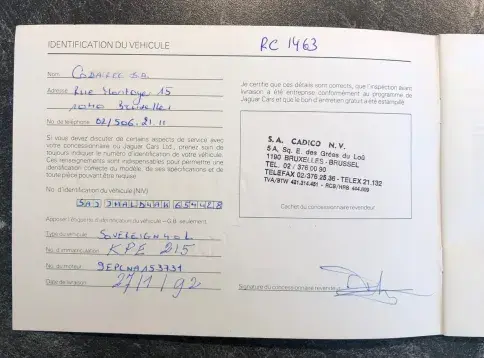 IDENTIFICATION DU VÉHICULE
RC 1463
Nom
Adresse Rue 15
1040 Bruxelles
No. de téléphone 02/506.21.11
Si vous avez discuter de certains aspects de service avec
votre concessionnaire où Jaguar Cars Ltd., prenez soin de
toujours indiquer le numéro d'identification de votre véhicule.
Ces renseignements sont indispensables pour permettre une
identification correcte du modèle, de ses spécifications et de
toute pièce pouvant être révisée.
No. d'identification du véhicule (NIV)
SAJ JHALD4AK 654428
Apposer l'étiquette d'identification du véhicule – G.B. seulement.
Type du véhicule SOVEREIGN 4.0 L
No. d'immatriculation KPE 215
No. du moteur 9EPCNA153731
Date de livraison 27/1/92
Je certifie que ces détails sont corrects, que l'inspection avant
livraison a été entreprise conformément au programme de
Jaguar Cars et que le bon d'entretien gratuit a été estampillé.
S.A. CADICO N.V.
5A, Sq. E. des Grées du Loû
1190 BRUXELLES - BRUSSEL
TEL. 02 / 376 00 90
TELEFAX 02/376 25.36 - TELEX 21.132
Cachet du concessionnaire revendeur
Signature du concessionnaire revendeur